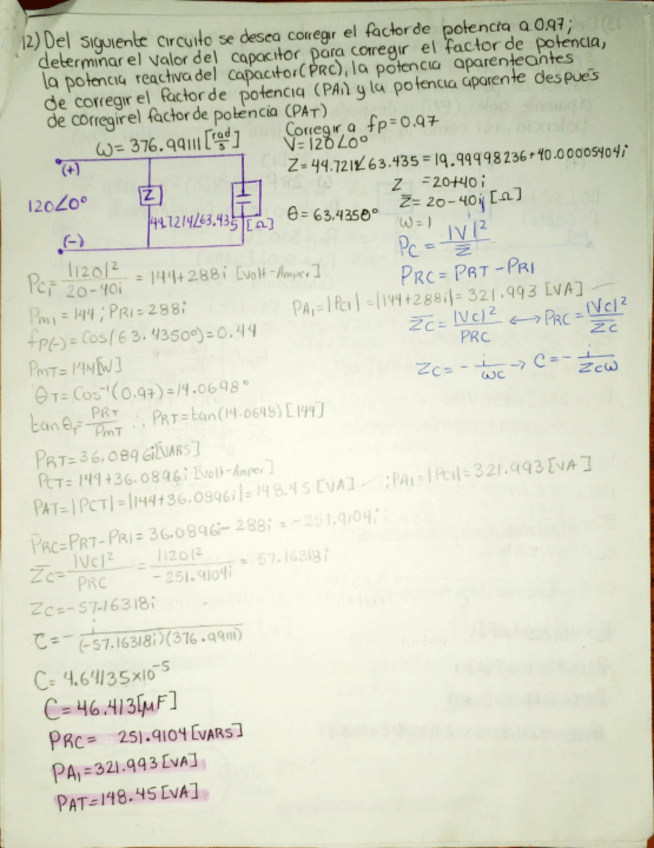 12) Del siguiente circuito se desea corregir el factor de potencia a 0.97;
determinar el valor del capacitor para corregir el factor de potencia,
la potencia reactiva del capacitor (PRC), la potencia aparente antes
de corregir el factor de potencia (PA1) y la potencia aparente después
de corregir el factor de potencia (PAT)
ω = 376.99111 [rad/s]
Corregir a fp=0.97
V=120∠0°
(+)
120∠0°
(-)
Z
44.7214∠63.435 [Ω]
Z = 44.721∠63.435 = 19.99998236+40.00005404i
Z =20+40i
Z̅= 20-40i [Ω]
θ = 63.4350°
ω=1
Pc = |V|²/Z̅
PRC = PRT - PR1
Pc1 = |120|²/20-40i = 144+288i [Volt-Amper]
Pm1 = 144 ; PR1 = 288i
PA1=|Pc1| = |144+288i|= 321.993 [VA]
Z̅c = |Vc|²/PRC ⟷ PRC = |Vc|²/Z̅c
fp(-) = Cos(63.4350°)=0.44
PmT= 144[W]
Zc = - i/ωC → C = - i/Zcω
θT = Cos⁻¹(0.97)=14.0698°
tanθT= PRT/PmT ∴ PRT=tan(14.0698)[144]
PRT=36.0896i[VARS]
PCT= 144+36.0896i [Volt-Amper]
PAT=|PCT|=|144+36.0896i|=148.45 [VA] ; PA1=|Pc1|=321.993[VA]
PRC=PRT-PR1= 36.0896i- 288i = -251.9104i
Z̅c= |Vc|²/PRC = |120|²/-251.9104i = 57.16318i
Zc=-57.16318i
C = - i/(-57.16318i)(376.99111)
C= 4.64135x10⁻⁵
C=46.413[μF]
PRC= 251.9104[VARS]
PA1=321.993[VA]
PAT=148.45[VA]